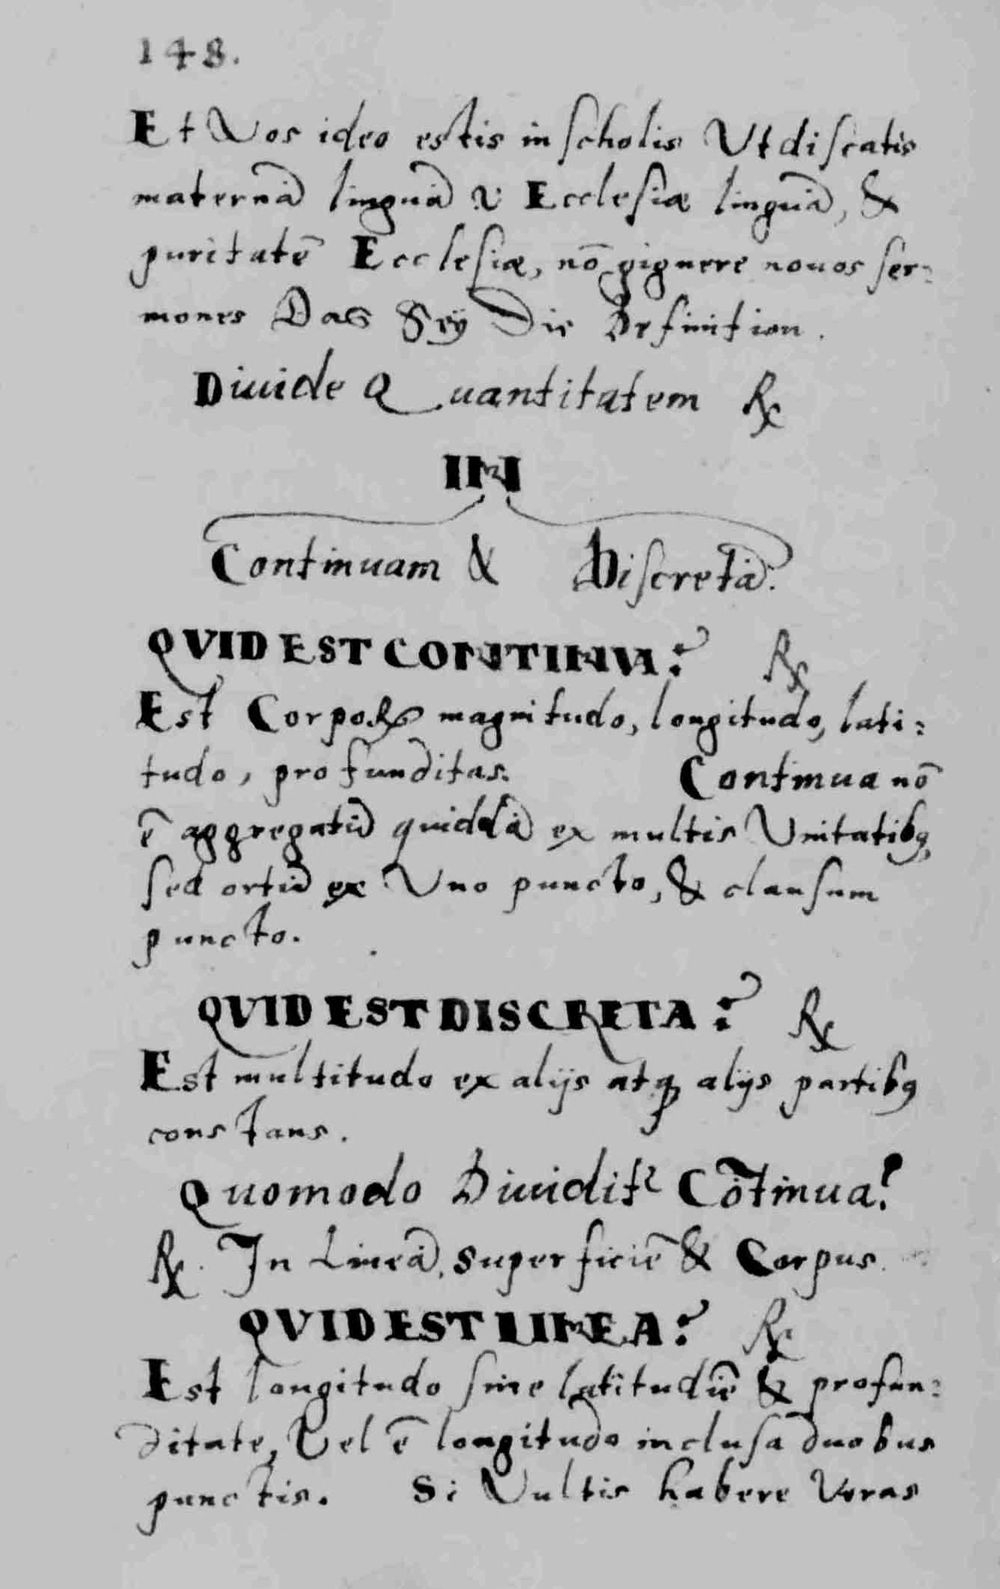 148.
Et Vos ideo estis in scholis Vt discatis
maternā linguā & Ecclesiæ linguā, &
puritatē Ecclesiæ, nō gignere nouos ser=
mones Das Seÿ Die Definition.
Diuide Quantitatem ℞
IN
Continuam & Discretā.
QVID EST CONTINVA? ℞
Est Corpoꝝ magnitudo, longitudo, lati=
tudo, profunditas. Continua nō
ē aggregatū quiddā ex multis Vnitatibꝫ
sed ortū ex Vno puncto, & clausum
puncto.
QVID EST DISCRETA? ℞
Est multitudo ex alijs atqꝫ alijs partibꝫ
constans.
Quomodo Diuiditr Cōtinua?
℞. In Lineā, superficiē & Corpus
QVID EST LINEA? ℞
Est longitudo sine latitudīe & profun=
ditate, Vel ē longitudo inclusa duobus
punctis. Si Vultis habere Veras